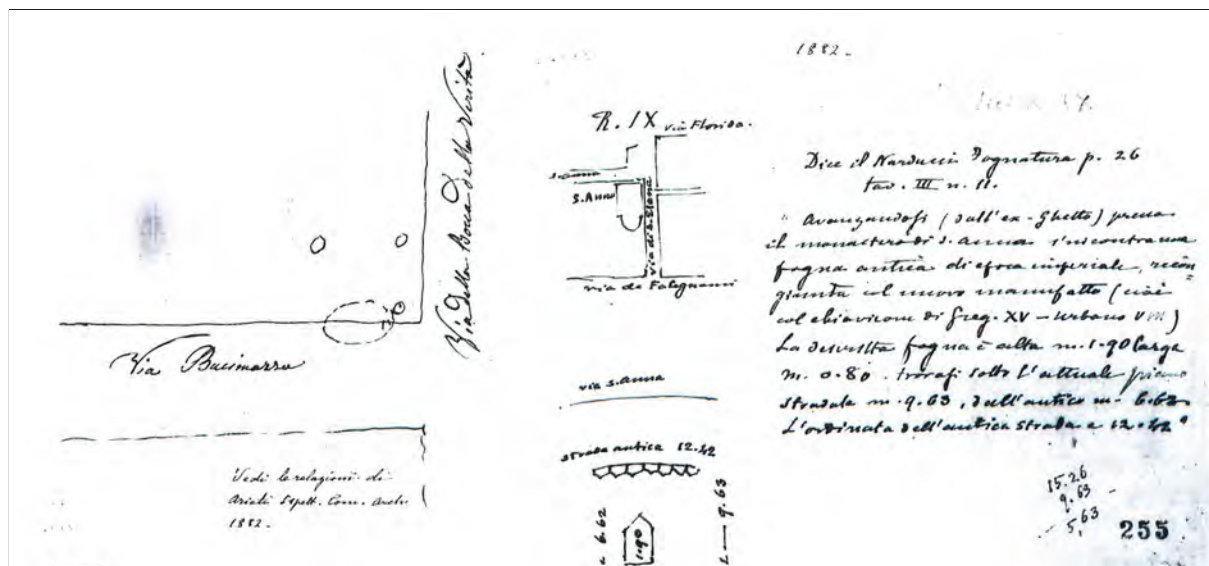 1882.
Via della Bocca della Verità
Via Bucimazza
Vedi le relazioni di
Arieti Ispett. Com. Arch.
1882.
R. IX via Florida.
s. Anna
S. Anna
via di S. Elena
via de Falegnami
via S. Anna
strada antica 12.42
6.62
1.90
9.63
Dice il Narducci Fognatura p. 26
tav. III n. 11.
" Avanzandosi (dall'ex-Ghetto) presso
il monastero di S. Anna s'incontra una
fogna antica di epoca imperiale, ricon=
giunta col nuovo manufatto (cioè
col chiavicone di Greg. XV – Urbano VIII)
La descritta fogna è alta m. 1.90 larga
m. 0.80. trovasi sotto l'attuale piano
stradale m. 9.63, dall'antico m. 6.62.
L'ordinata dell'antica strada è 12.42"
15.26
9.63
5,63
255